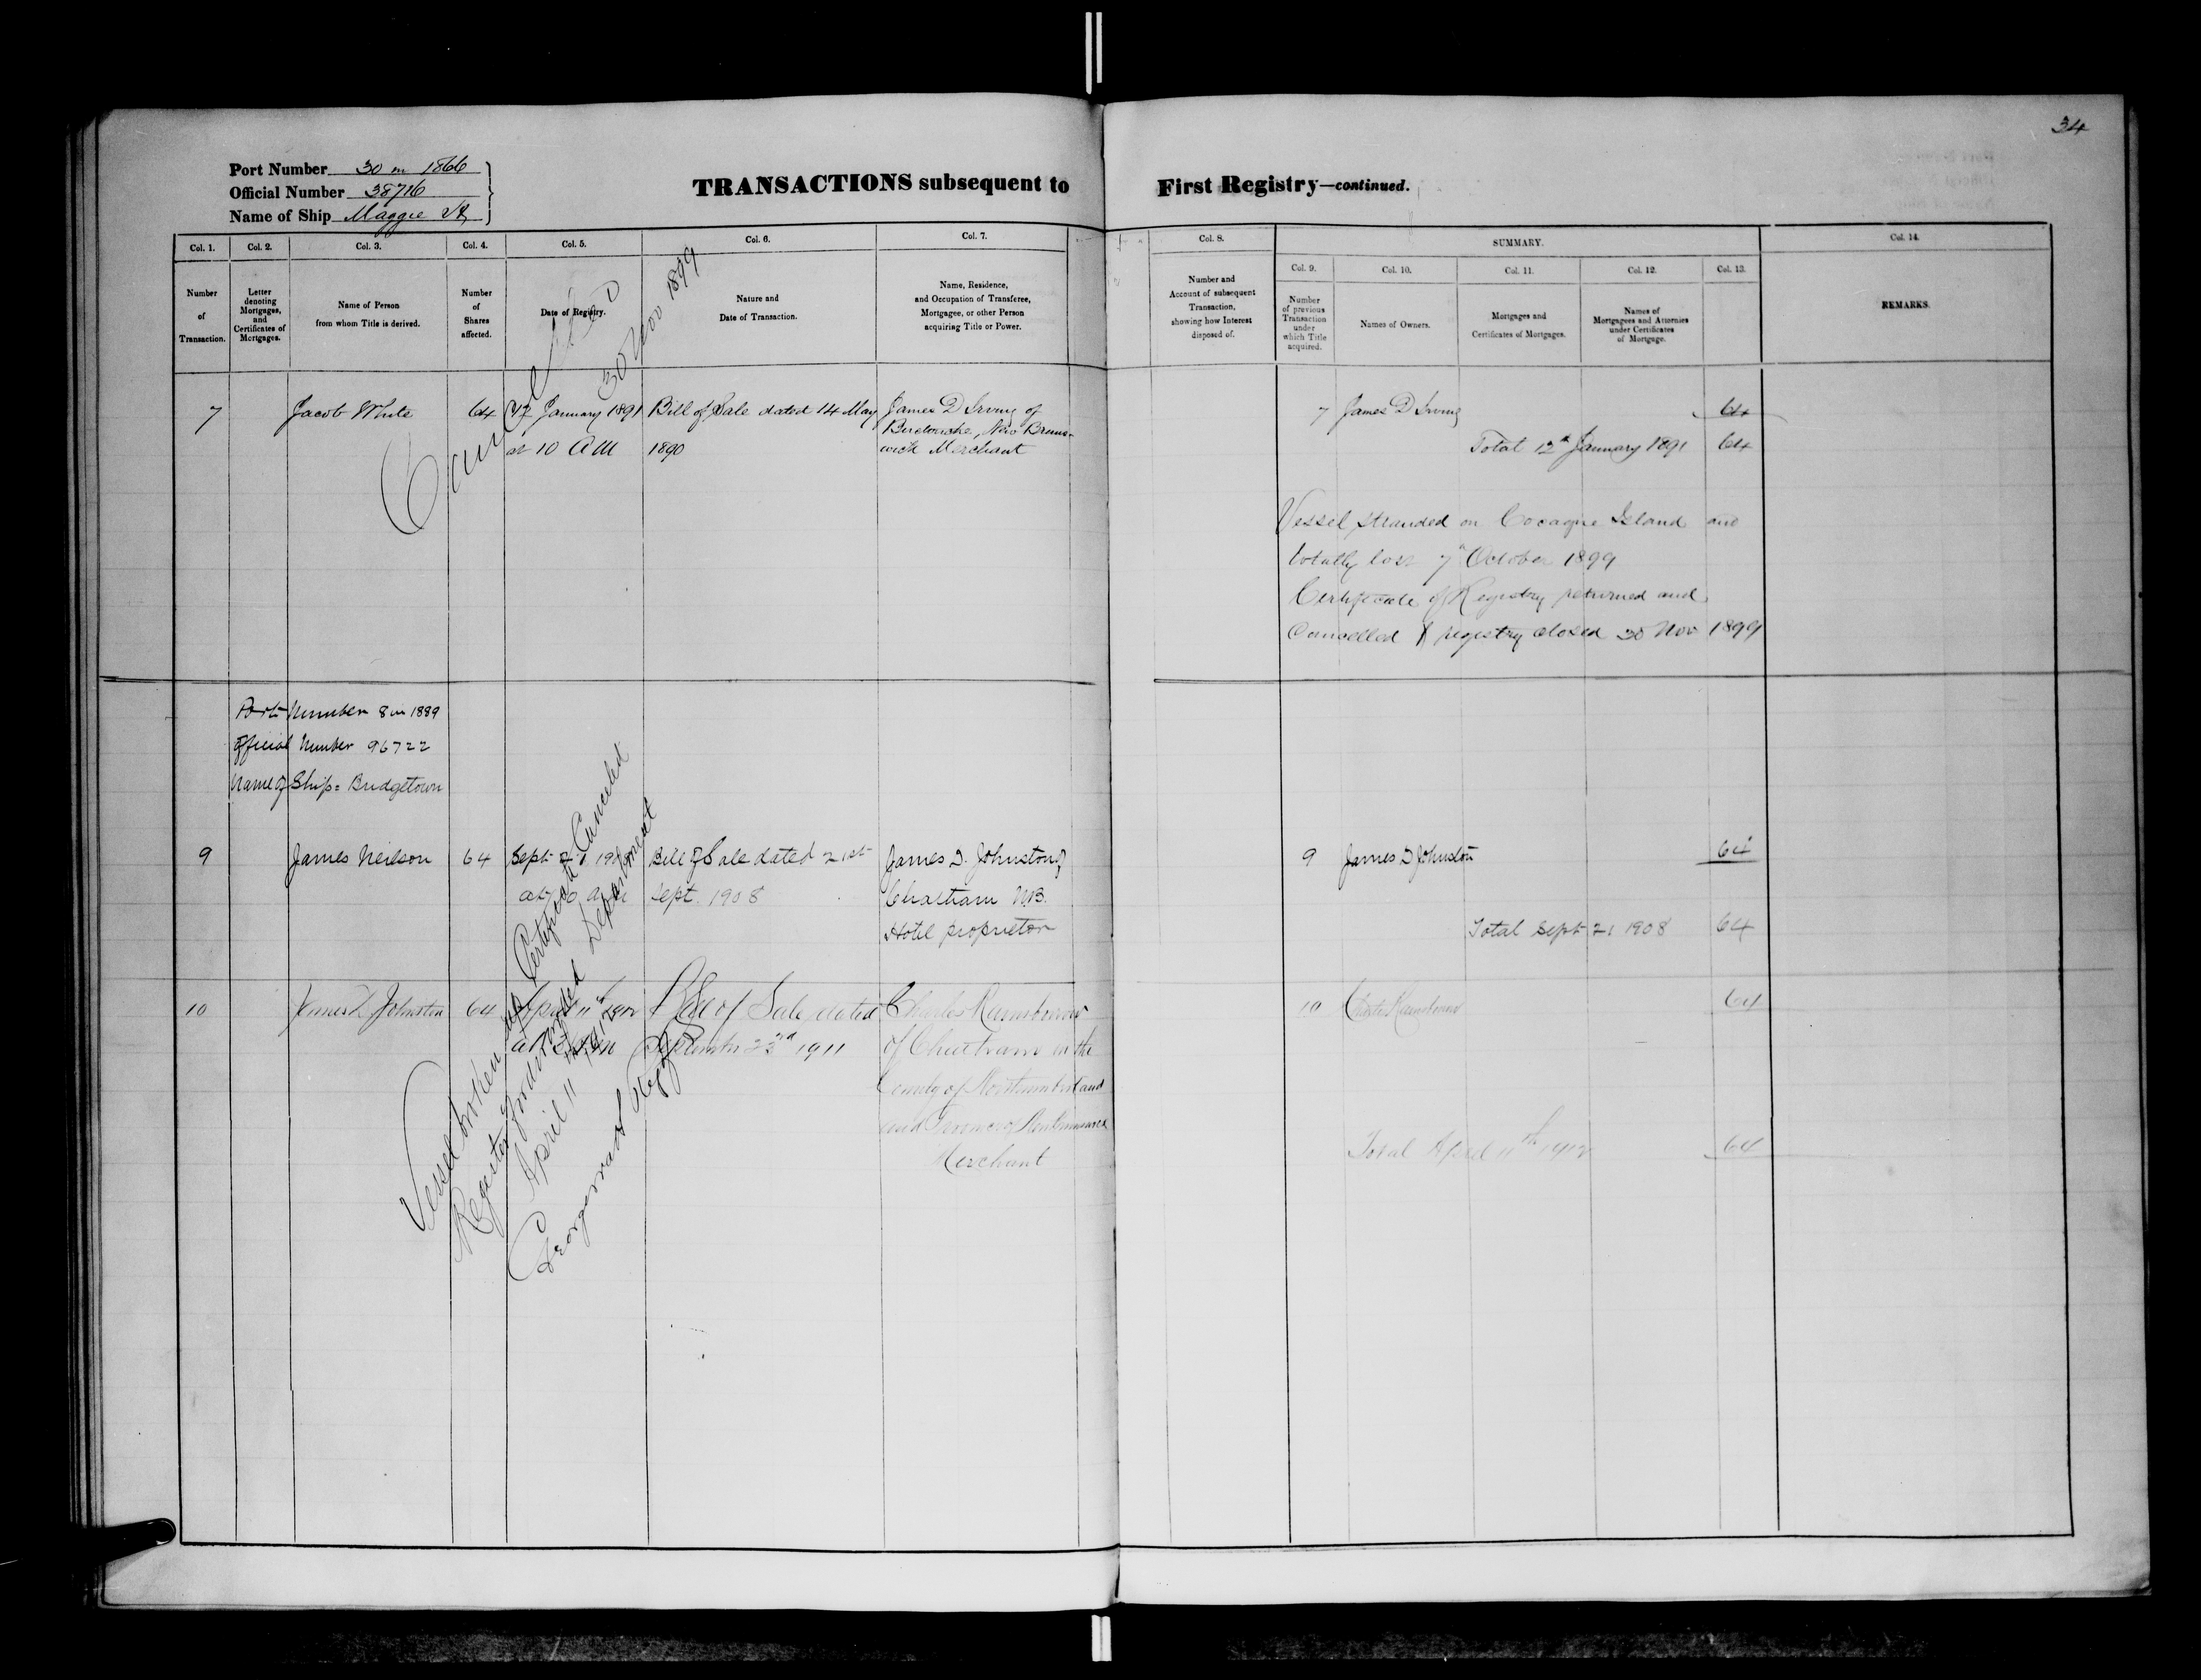 34
Port Number 30 in 1866
Official Number 38716
Name of Ship Maggie
TRANSACTIONS subsequent to First Registry—continued.
Col. 1.
Number
of
Transaction.
Col. 2.
Letter
denoting
Mortgages,
and
Certificates of
Mortgages.
Col. 3.
Name of Person
from whom Title is derived.
Col. 4.
Number
of
Shares
affected.
Col. 5.
Date of Registry.
Col. 6.
Nature and
Date of Transaction.
Col. 7.
Name, Residence,
and Occupation of Transferee,
Mortgagee, or other Person
acquiring Title or Power.
Col. 8.
Number and
Account of subsequent
Transaction,
showing how Interest
disposed of.
SUMMARY.
Col. 9.
Number
of previous
Transaction
under
which Title
acquired.
Col. 10.
Names of Owners.
Col. 11.
Mortgages and
Certificates of Mortgages.
Col. 12.
Names of
Mortgagees and Attornies
under Certificates
of Mortgage.
Col. 13.
Col. 14.
REMARKS.
7
Jacob White
64
12 January 1891
at 10 AM
Bill of Sale dated 14 May
1890
James D Irving of
Buctouche, New Bruns-
wick Merchant
Cancelled
30 Nov 1899
7 James D Irving 64
Total 12th January 1891 64
Vessel stranded on Cocagne Island and
totally lost 7th October 1899
Certificate of Registry returned and
Cancelled & registry closed 30 Nov 1899
Port Number 8 in 1889
Official Number 96722
Name of Ship = Bridgetown
9
James Neilson
64
Sept 21 1908
at 10 am
Bill of Sale dated 21st
Sept. 1908
James D. Johnston of
Chatham N.B.
Hotel proprietor
9 James D Johnston 64
Total Sept 21 1908 64
10
James D Johnston
64
April 11th 1912
at
Bill of Sale dated
September 22nd 1911
Charles
of Chatham in the
County of Northumberland
and Province of New Brunswick
Merchant
10 Charles 64
Total April 11th 1912 64
Vessel broken up Certificate Canceled
Registry forwarded Department
April 11 1912